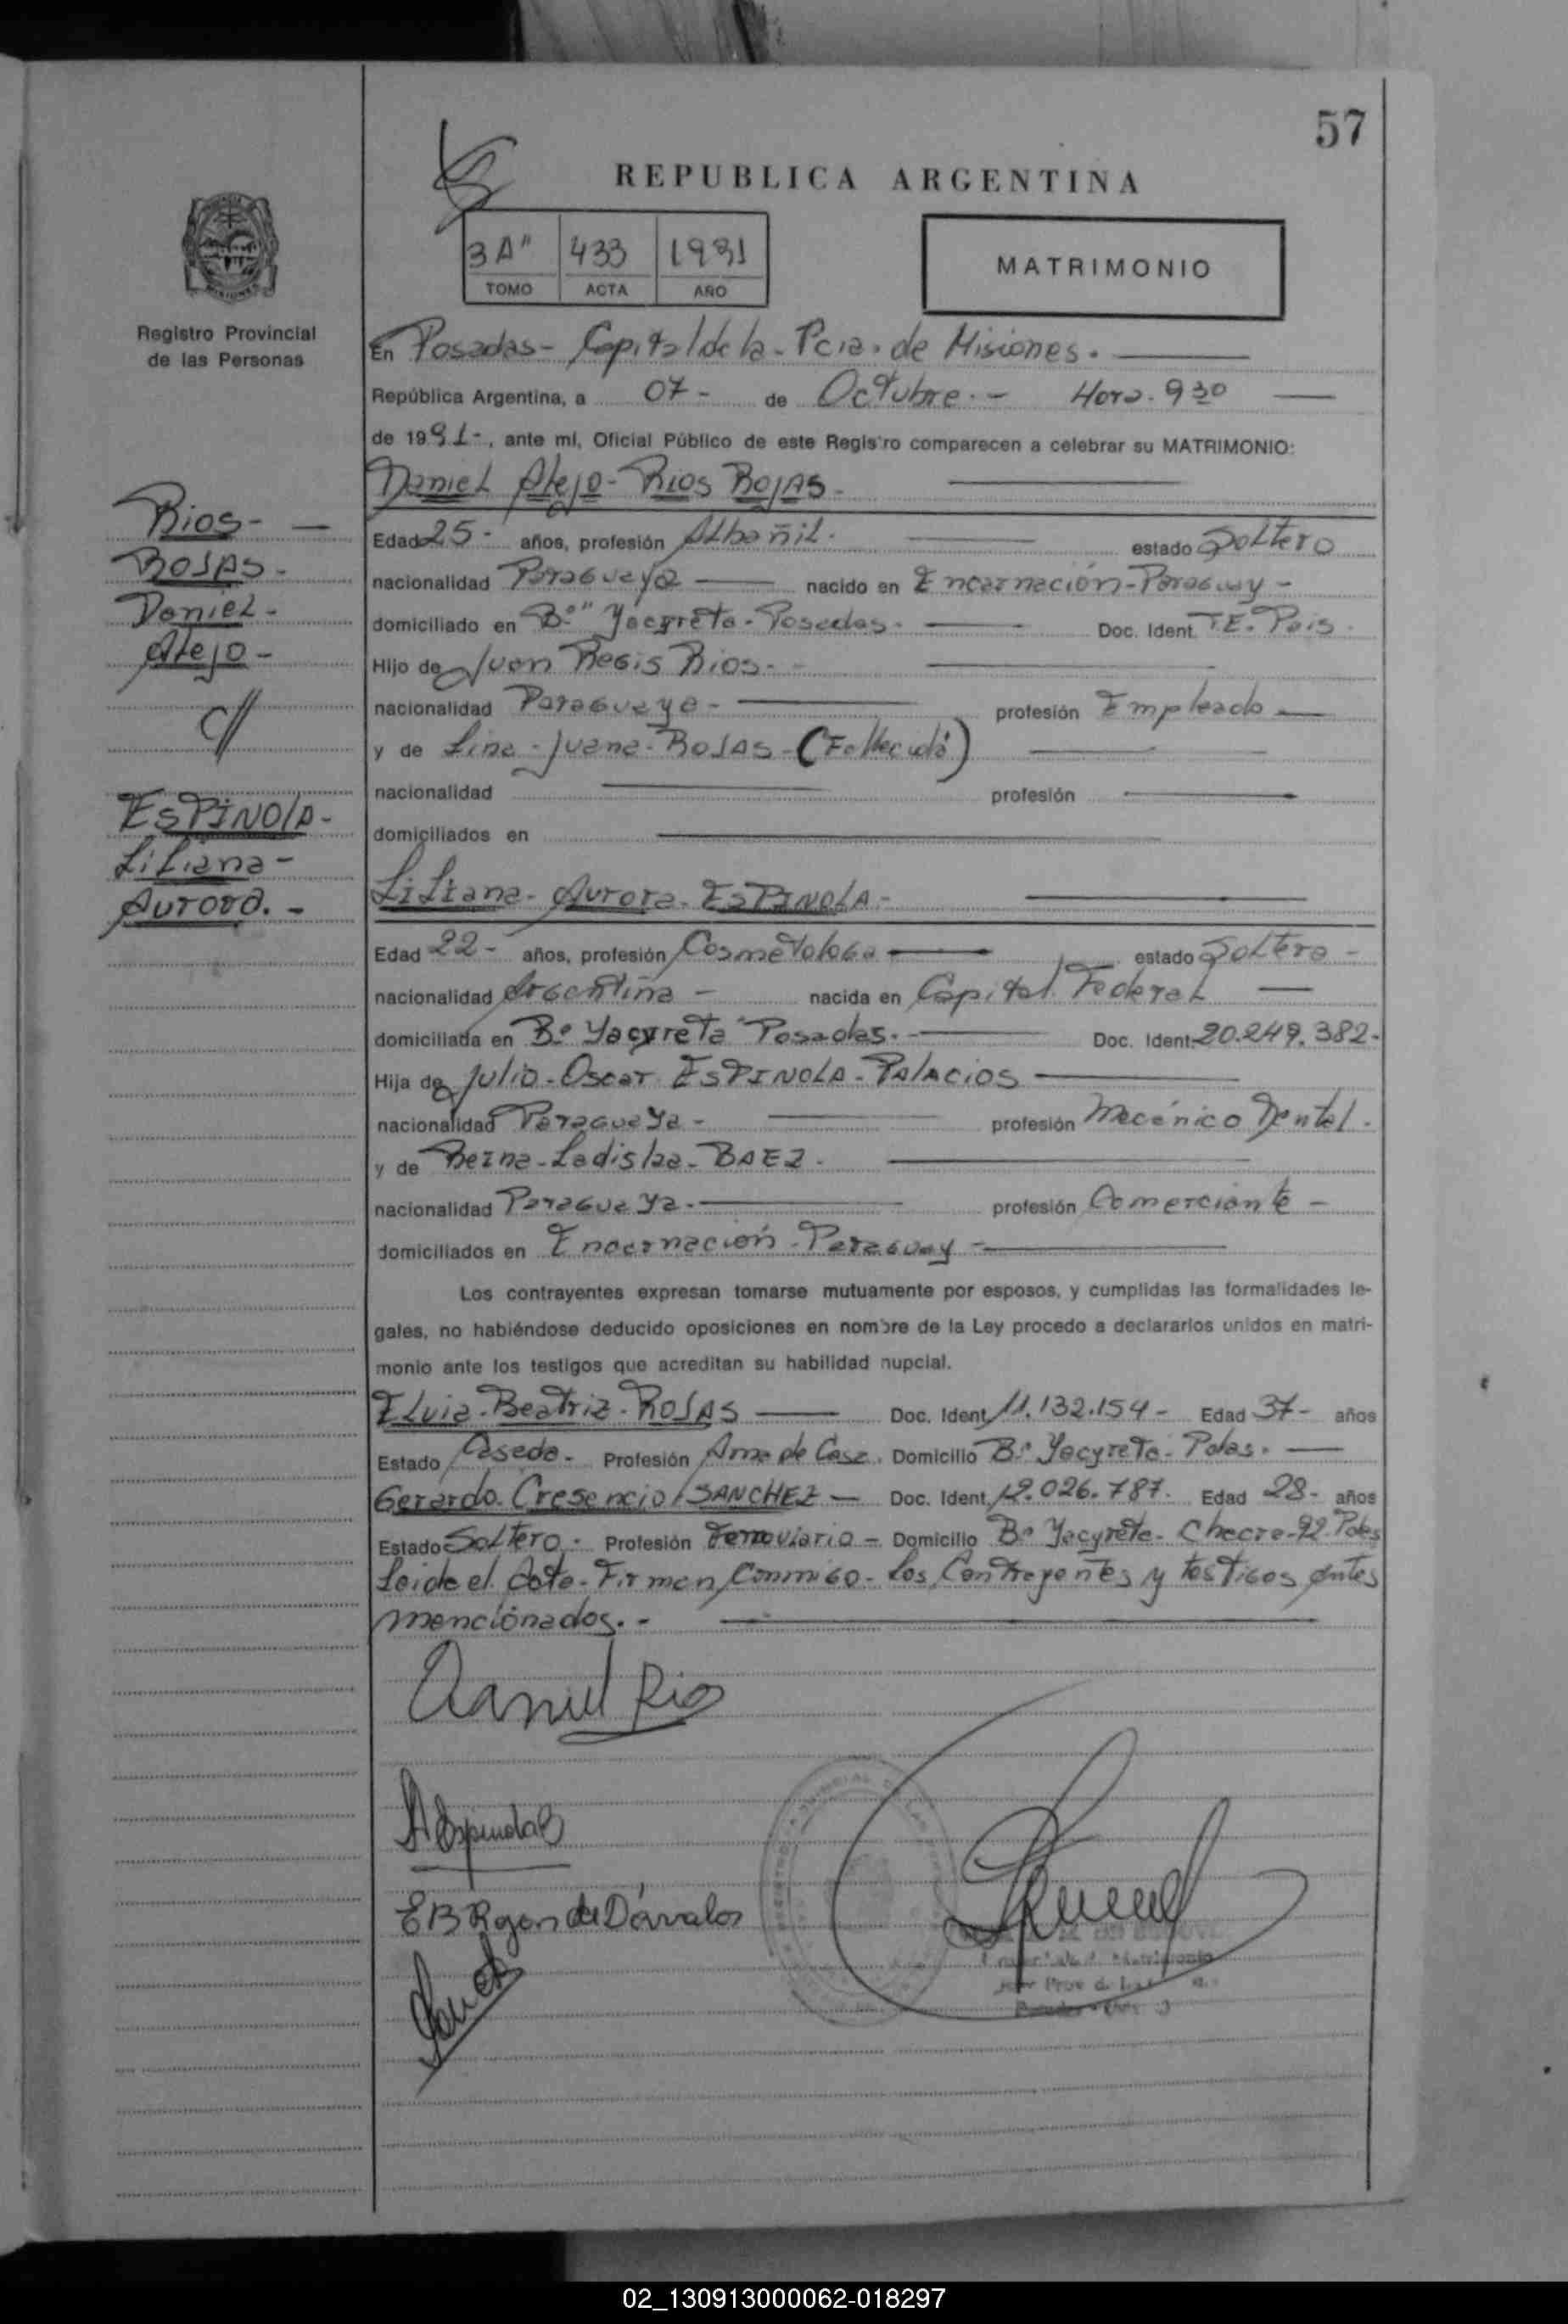 57
REPUBLICA ARGENTINA
3 A" 433 1991
TOMO ACTA AÑO
MATRIMONIO
MISIONES
Registro Provincial
de las Personas
En Posadas - Capital de la - Pcia. de Misiones.
República Argentina, a 07- de Octubre.- Hora. 9 30
de 1991-, ante mí, Oficial Público de este Registro comparecen a celebrar su MATRIMONIO:
Daniel Alejo - Rios Rojas -
Rios-
Rojas-
Daniel-
Alejo-
c//
ESPINOLA-
Liliana-
Aurora.-
Edad 25- años, profesión Albañil. estado Soltero
nacionalidad Paraguaya nacido en Encarnación - Paraguay -
domiciliado en B.º "Yacyreta - Posadas. Doc. Ident. T.E. Pais.
Hijo de Juan Regis Rios.-
nacionalidad Paraguaya - profesión Empleado
y de Lina - Juana - ROJAS - (Fallecida)
nacionalidad profesión
domiciliados en
Liliana - Aurora - ESPINOLA -
Edad 22- años, profesión Cosmetologa estado Soltera -
nacionalidad Argentina - nacida en Capital Federal
domiciliada en B.º Yacyreta" Posadas.- Doc. Ident. 20.249.382-
Hija de Julio - Oscar ESPINOLA - PALACIOS
nacionalidad Paraguaya - profesión Mecánico Dental.
y de Ladislaa - BAEZ.
nacionalidad Paraguaya.- profesión Comerciante -
domiciliados en Encarnación - Paraguay -
Los contrayentes expresan tomarse mutuamente por esposos, y cumplidas las formalidades le-
gales, no habiéndose deducido oposiciones en nombre de la Ley procedo a declararlos unidos en matri-
monio ante los testigos que acreditan su habilidad nupcial.
Elvia - Beatriz - ROJAS Doc. Ident. 11.132.154- Edad 37- años
Estado Casada- Profesión Ama de Casa. Domicilio B.º Yacyreta - Pdas.
Gerardo Cresencio SANCHEZ - Doc. Ident. 12.026.787. Edad 28- años
Estado Soltero. Profesión Ferroviario - Domicilio B.º Yacyreta - Chacra - 92. Pdas
Leida el Acta - Firman Conmigo - los Contrayentes y testigos antes
mencionados.-
Daniel Rios
EB Rojas de Dávalos
02_130913000062-018297